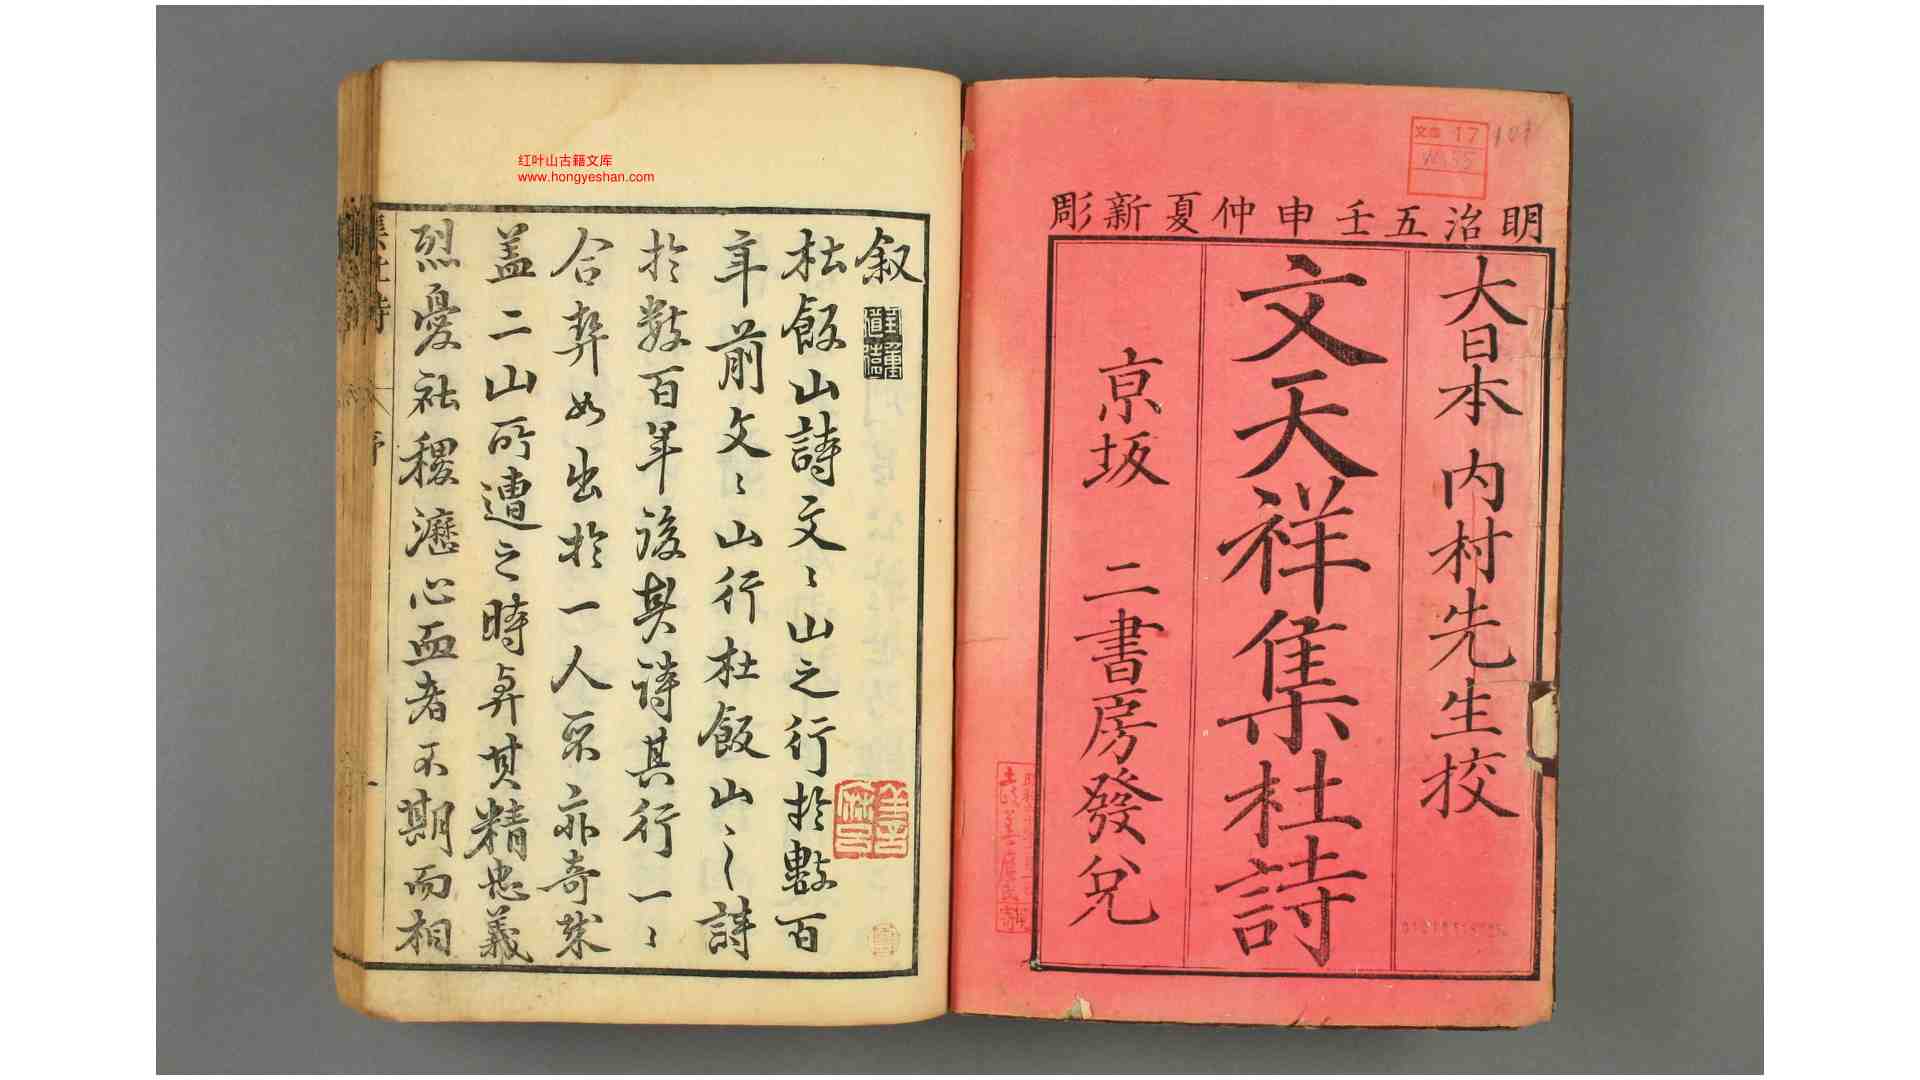 明治五壬申仲夏新彫
大日本 内村先生校
文天祥集杜詩
京坂 二書房發兌
文庫 17
W155
叙
杜飯山詩文〻山之行於數百
年前文〻山行杜飯山之詩
於數百年後其詩其行一〻
合契如出於一人不亦奇哉
盖二山所遭之時与其精忠義
烈憂社稷瀝心血者不期而相
集杜詩
序
一
红叶山古籍文库
www.hongyeshan.com